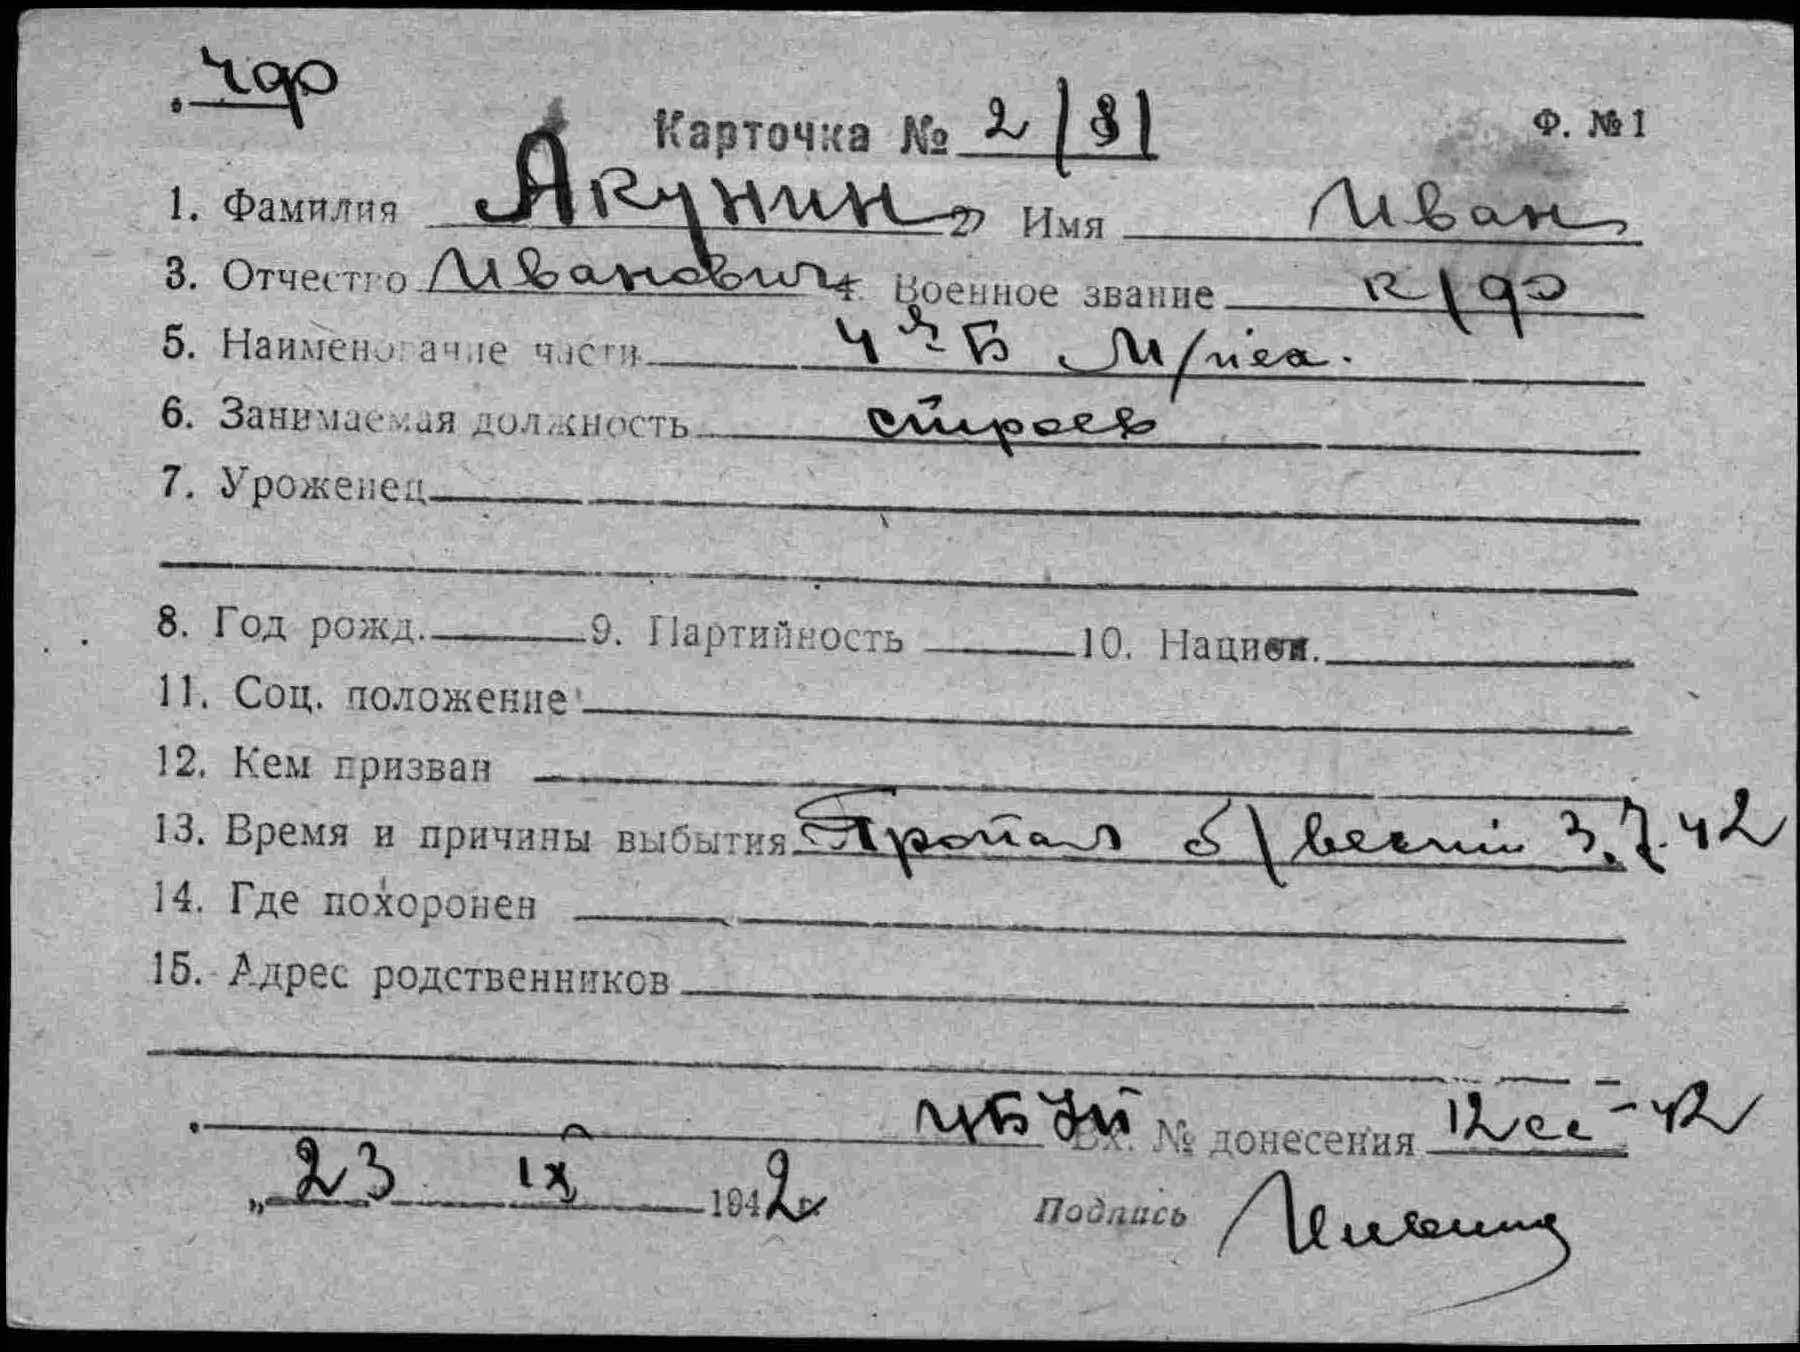 чф
Карточка № 2/81 Ф. № 1
1. Фамилия Акунин 2) Имя Иван
3. Отчество Иванович 4. Военное звание к/ф
5. Наименование части 4й Б М/пех.
6. Занимаемая должность строев
7. Уроженец
8. Год рожд. 9. Партийность 10. Национ.
11. Соц. положение
12. Кем призван
13. Время и причины выбытия Пропал б/вести 3.7.42
14. Где похоронен
15. Адрес родственников
Вх. № донесения 12сс-42
„23 IX 1942 г.
Подпись